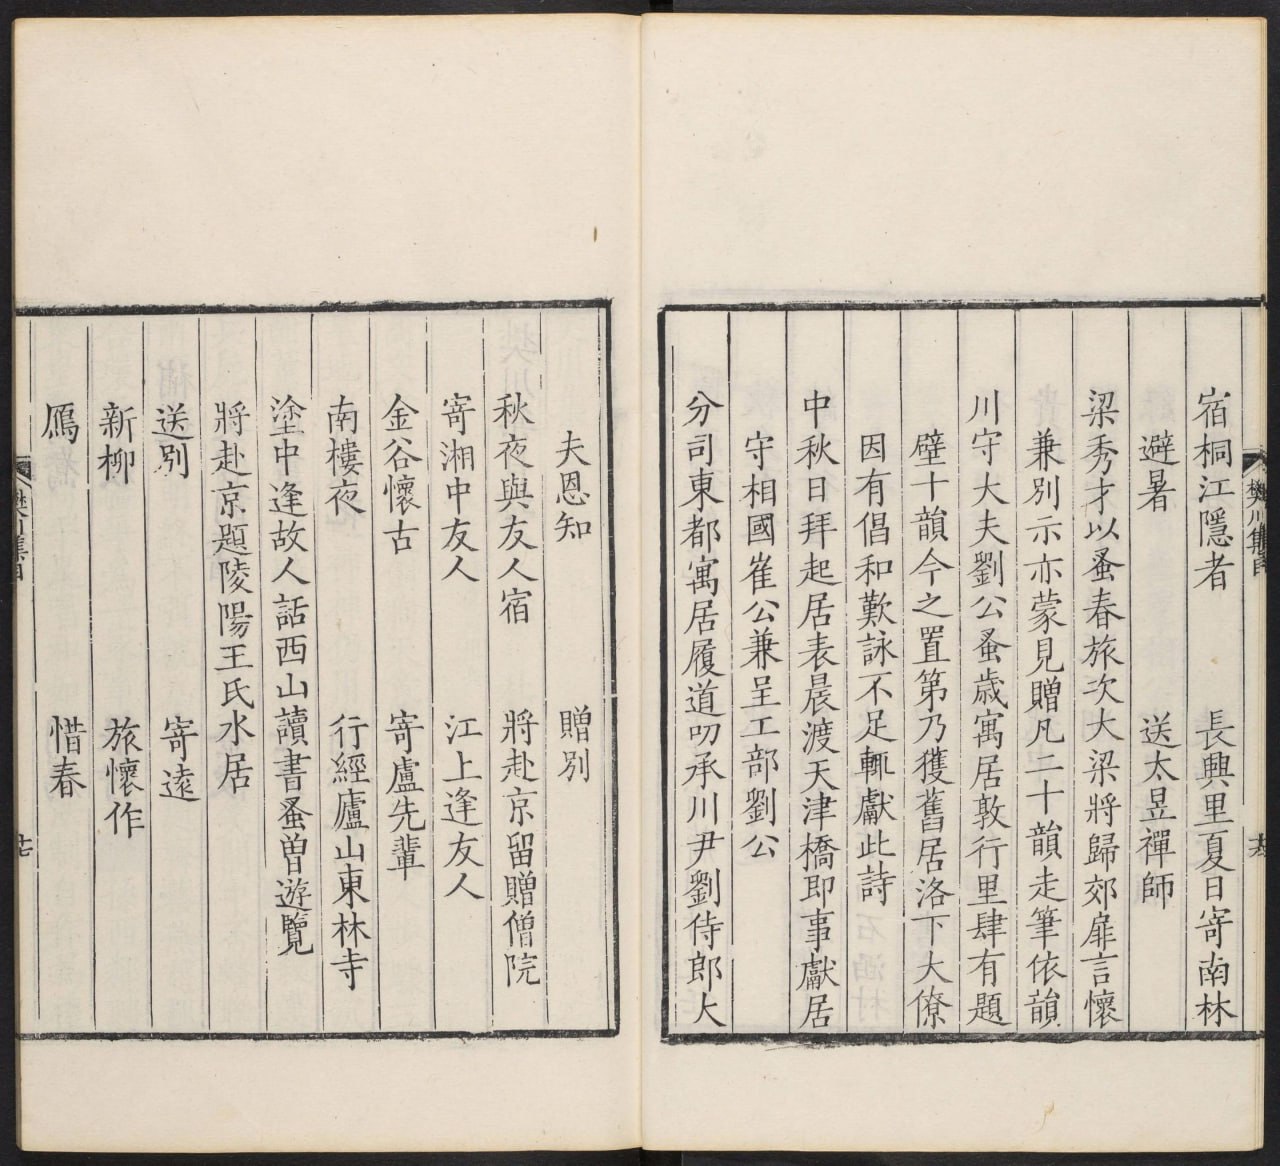 宿桐江隱者　長興里夏日寄南林
避暑　送太昱禪師
梁秀才以蚤春旅次大梁將歸郊扉言懷
兼別示亦蒙見贈凡二十韻走筆依韻
川守大夫劉公蚤歲寓居敦行里肆有題
壁十韻今之置第乃獲舊居洛下大僚
因有倡和歎詠不足輒獻此詩
中秋日拜起居表晨渡天津橋即事獻居
守相國崔公兼呈工部劉公
分司東都寓居履道叨承川尹劉侍郎大
夫恩知　贈別
秋夜與友人宿　將赴京留贈僧院
寄湘中友人　江上逢友人
金谷懷古　寄盧先輩
南樓夜　行經廬山東林寺
塗中逢故人話西山讀書蚤曽遊覽
將赴京題陵陽王氏水居
送別　寄遠
新柳　旅懷作
鴈　惜春
樊川集目